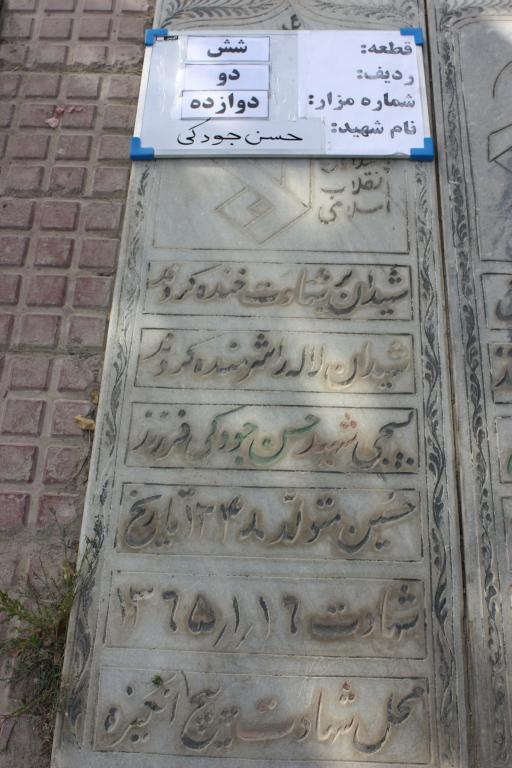 قطعه: شش
ردیف: دو
شماره مزار: دوازده
نام شهید: حسن جودکی
پاسداران
انقلاب
اسلامی
شهیدان بر شهادت خنده کردند
شهیدان لاله را شرمنده کردند
بسیجی شهید حسن جودکی فرزند
حسین متولد ۱۳۴۸ تاریخ
شهادت ۱۶/۱/۱۳۶۵
محل شهادت پیچ انگیزه